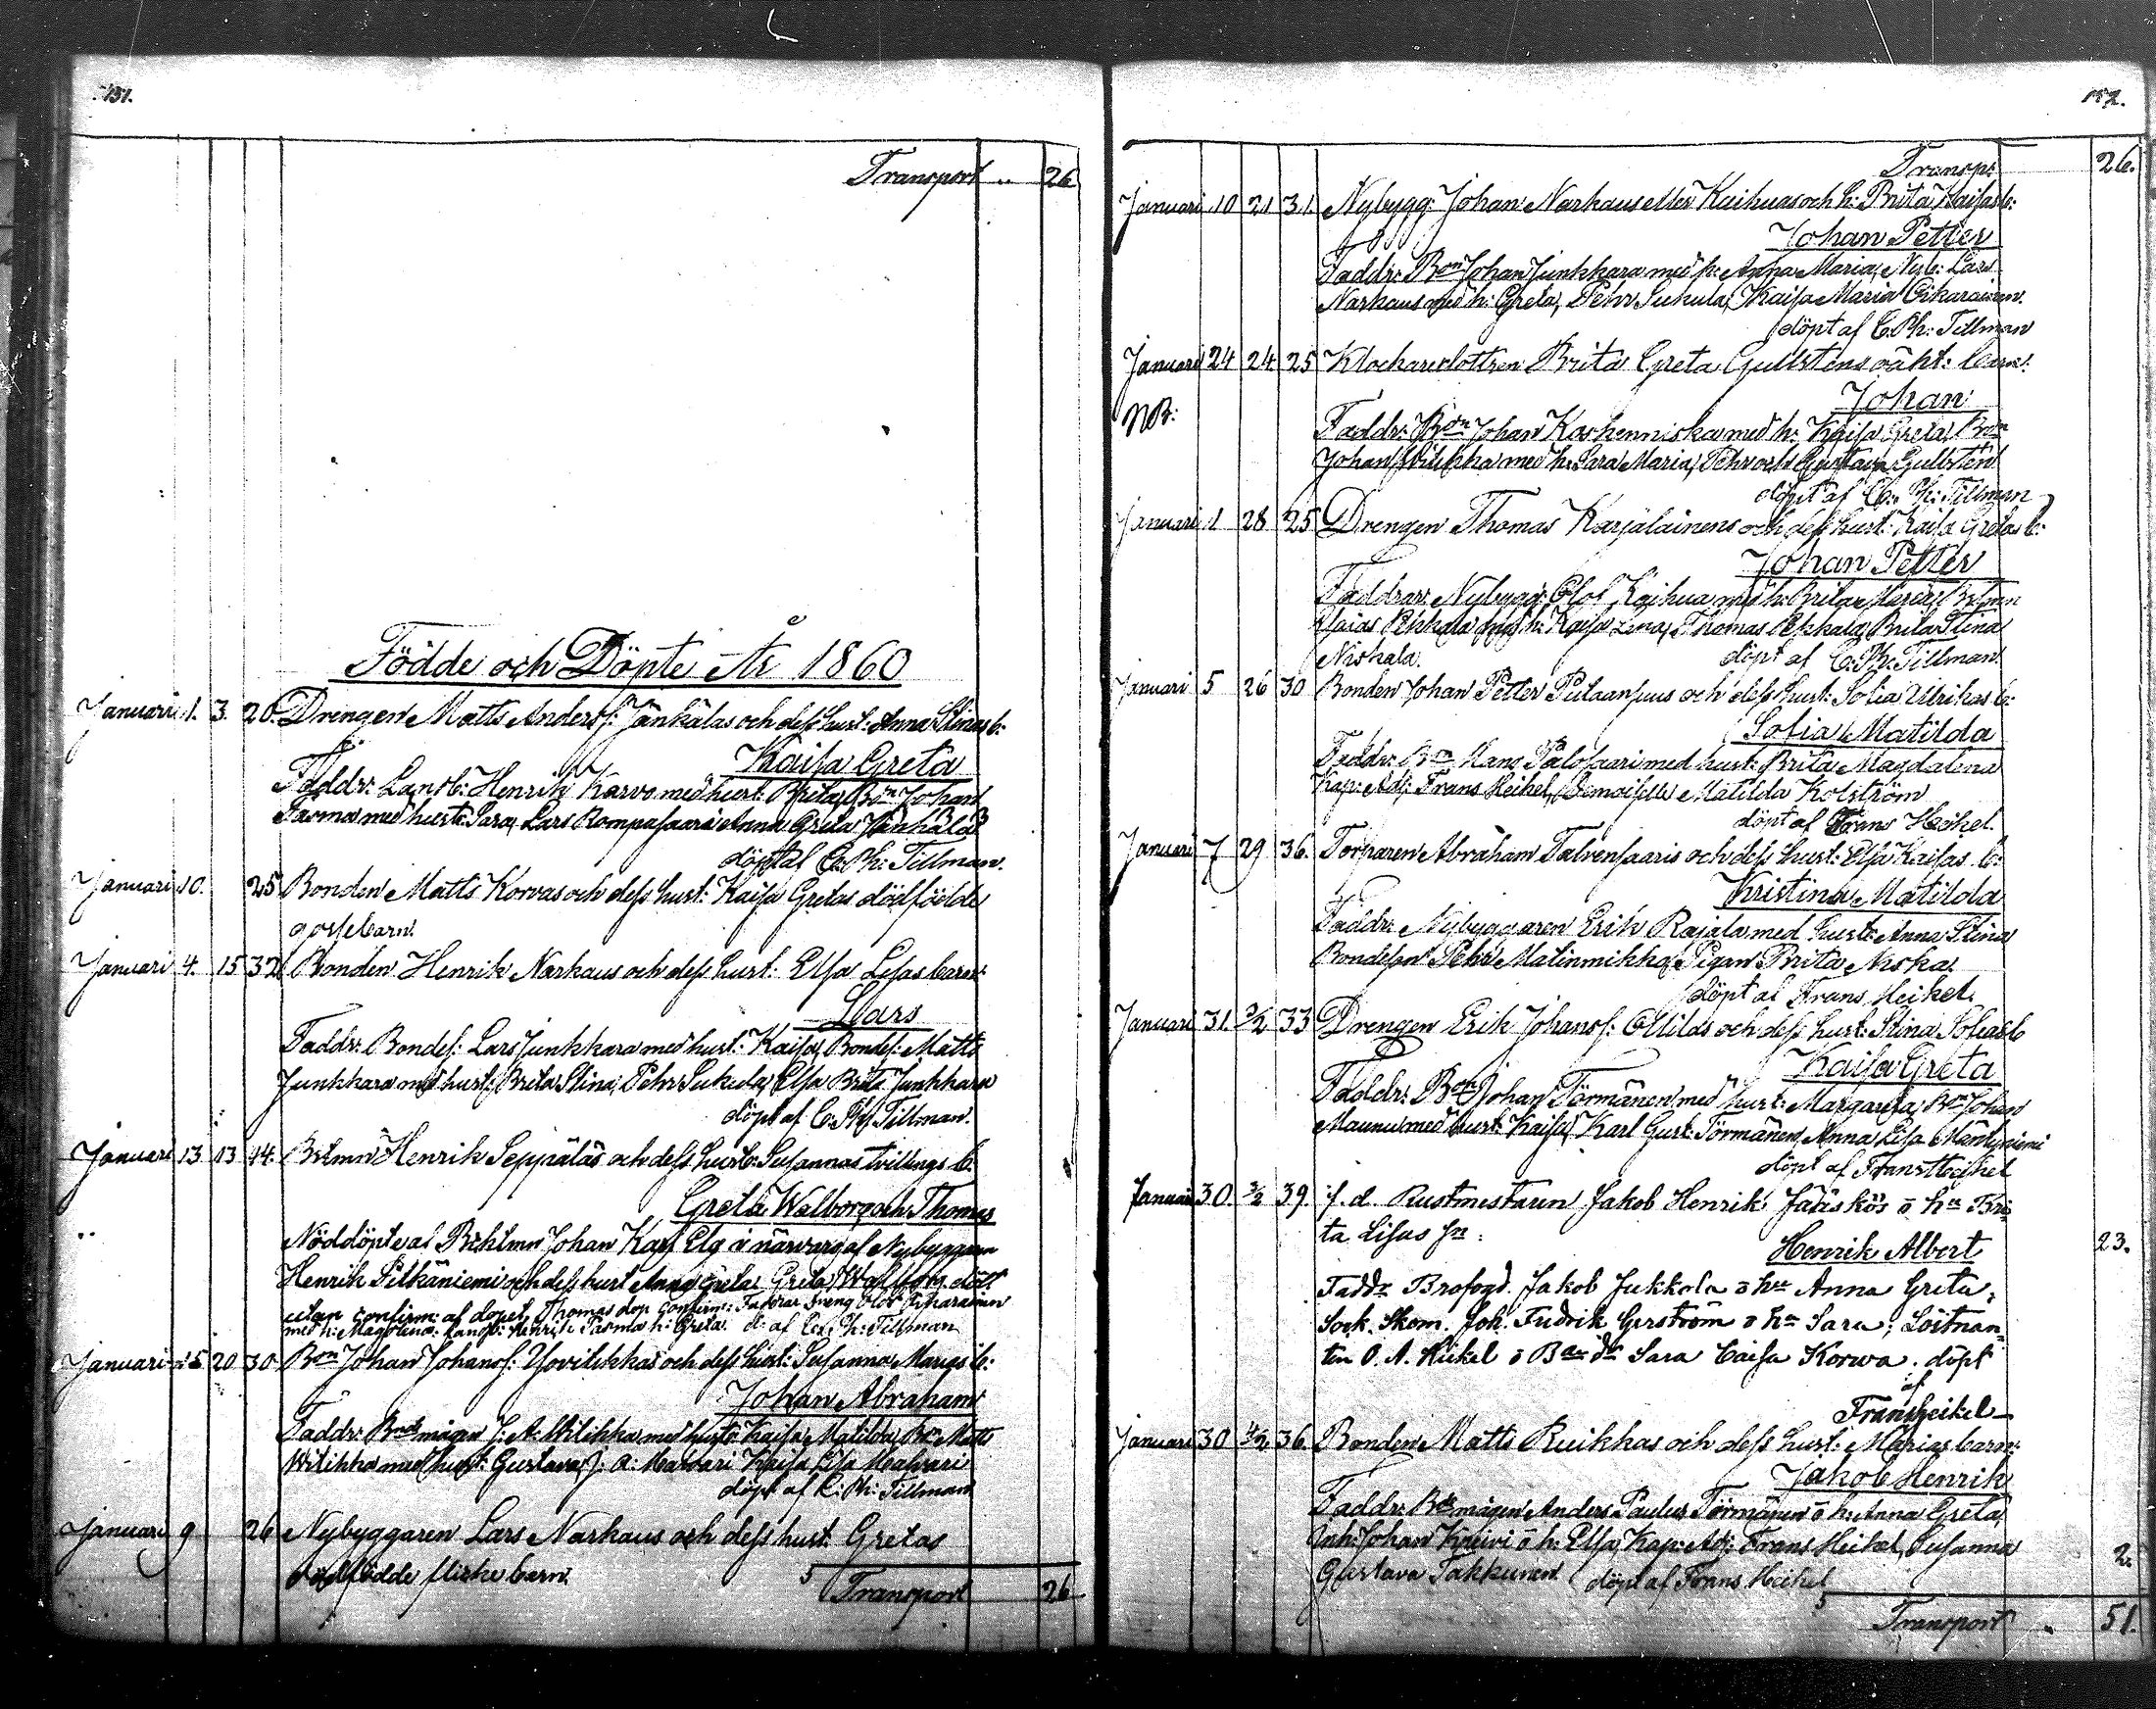 151.
Transport " 26
Födde och Döpte År 1860
Januari 1. 3. 20. Drengen Matts Anders: Jänkäläs och dess hust: Anna Stinas b:
Kaisa Greta
Faddr: Lantb: Henrik Karvo med hust: Brita, Bon Johan
Tarma med hust: Sara, Lars Rompasaari Anna Greta Jänkälä
döpt af C. Ph: Tillman.
Januari 10. 25 Bonden Matts Korvas och dess hust: Kaisa Gretas dödfödde
gossebarn.
Januari 4. 15 32 Bonden Henrik Narkaus och dess hust: Elsa Lisas barn:
Lars
Faddr: Bondes: Lars Junkkara med hust: Kaisa, Bondes: Matts
Junkkara med hust: Brita Stina, Pehr Sukula, Elsa Brita Junkkara
döpt af C. Ph: Tillman.
Januari 13 13 44. Brkmn Henrik Seppäläs och dess hust: Susannas tvillings b.
Greta Walborg och Thomas
Nöddöpte af Brkmn Johan Karl Elg i närvaro af Nybyggaren
Henrik Pitkäniemi och dess hust Anna Greta. Greta Walborg död
utan confirm: af dopet, Thomas dop confirm: Faddrar Dreng Olof Oikarainen
med h: Magdlena: Landb: Henrik Tarma h: Greta. d: af C: Ph: Tillman
Januari 15 20 30. Bon Johan Johans: Yovilikkas och dess hust: Susanna Marias b:
Johan Abraham
Faddr: Bndemågen J: A: Wilikka med hust: Kaisa Matilda, Bon Matts
Wilikka med hust: Gustava, J: A: Halvari Kaisa Lisa Halvari
döpt af C: Ph: Tillman
Januari 9 26 Nybyggaren Lars Narkaus och dess hust. Gretas
dödfödde flickebarn.
5 Transport 26
152.
Transp: 26.
Januari 10 21 31. Nybygg: Johan Narkaus eller Kaihuas och h: Brita Kaisas b:
Johan Petter
Faddr: Bon Johan Junkkara med h: Anna Maria, Nyb: Lars
Narkaus med h: Greta, Pehr Sukula, Kaisa Maria Oikarainen.
döpt af C. Ph: Tillman
Januari 24 24 25 Klockaredottren Brita Greta Gullstens oäkt: barn:
NB:
Johan
Faddr: Bon Johan Koskenniska med h: Kaisa Greta, Bon
Johan Wilikka med h: Sara Maria, Pehr och Gustava Gullstén
döpt af C. Ph: Tillman
Januari 1 28 25 Drengen Thomas Karjalainens och dess hust: Kaisa Gretas b:
Johan Petter
Faddrar: Nybygg: Olof Kaihua med h: Brita Maria, Brkmn
Isias Pekkala med h: Kaisa Lena, Thomas Pekkala, Brita Stina
Niskala. döpt af C. Ph: Tillman.
Januari 5 26 30 Bonden Johan Petter Putaansuus och dess hust: Sofia Ulrikas b:
Sofia Matilda
Faddr: Bon Hans Palosaari med hust: Brita Magdalena
Kap: Adj: Frans Heikel, Demoiselle Matilda Kolström
döpt af Frans Heikel.
Januari 7 29 36. Torparen Abraham Talvensaaris och dess hust: Elsa Kaisas b.
Kristina Matilda
Faddr: Nybyggaren Erik Rajala med hust: Anna Stina
Bondeson Pehr Matinmikko, Pigan Brita Niska.
döpt af Frans Heikel.
Januari 31. 2/2 33 Drengen Erik Johans: Ollilas och dess hust: Stina Sofias b
Kaisa Greta
Faddr: Bon Johan Törmänen med hust: Margareta, Bon Johan
Maunu med hust: Kaisa, Karl Gust: Törmänen, Anna Lisa Mäntyniemi
döpt af Frans Heikel
Januari 30. 3/2 39. f. d. Rustmestaren Jakob Henrik Jääskös o hu Bri
ta Lisas sn:
Henrik Albert 23.
Faddr Brofogd. Jakob Jukkola o hu Anna Greta,
Sock. Skom. Joh. Fredrik Gerström o hu Sara; Löitnan
ten O. A. Heikel o Bdedr Sara Caisa Korwa. döpt
af
Frans Heikel
Januari 30 4/2 36. Bonden Matts Ruikkas och dess hust: Marias barn:
Jakob Henrik
Faddr: Bdemågen Anders Paulus Törmänen o h: Anna Greta
Inh: Johan Kreivi o h: Elsa, Kap: Adj: Frans Heikel, Susanna
Gustava Takkunen döpt af Frans Heikel 2.
5
Transport " 51.